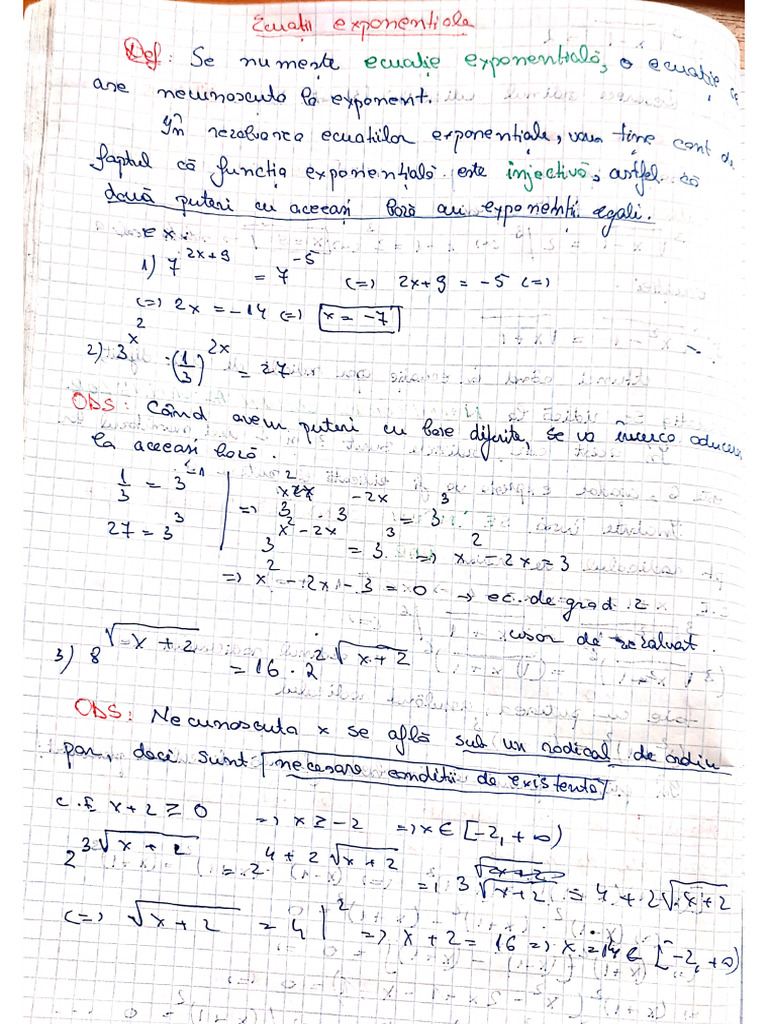 Ecuații exponențiale
Def: Se numește ecuație exponențială, o ecuație ce
are necunoscuta la exponent.
În rezolvarea ecuațiilor exponențiale, vom ține cont de
faptul că funcția exponențială este injectivă, astfel că
două puteri cu aceeași bază au exponenții egali.
Ex:
1) 7^(2x+9) = 7^(-5) (=) 2x+9 = -5 (=)
(=) 2x = -14 (=) x = -7
2) 3^(x^2) · (1/3)^(2x) = 27
OBS: Când avem puteri cu baze diferite, se va încerca aducerea
la aceeași bază.
1/3 = 3^(-1) | => 3^(x^2) · 3^(-2x) = 3^3
27 = 3^3 | 3^(x^2-2x) = 3^3 => x^2 - 2x = 3
=> x^2 - 2x - 3 = 0 → ec. de grad 2
ușor de rezolvat.
3) 8^√(x+2) = 16 · 2^(2√(x+2))
OBS: Necunoscuta x se află sub un radical de ordin
par, deci sunt necesare condiții de existență
C.E x+2 ≥ 0 => x ≥ -2 => x ∈ [-2, +∞)
2^(3√(x+2)) = 2^(4+2√(x+2)) => 3√(x+2) = 4 + 2√(x+2)
(=) √(x+2) = 4 |^2 => x+2 = 16 => x = 14 ∈ [-2, +∞)